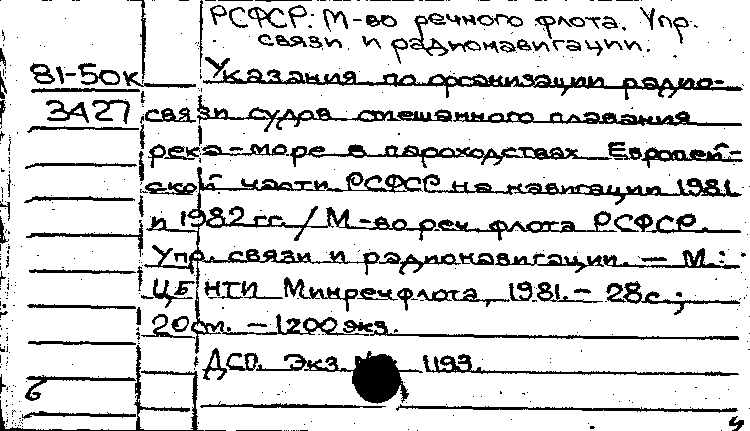 РСФСР: М-во речного флота. Упр.
связи и радионавигации.
81-50к Указания по организации радио-
3427 связи судов смешанного плавания
река-море в пароходствах Европей-
ской части РСФСР на навигации 1981
и 1982 гг. / М-во реч. флота РСФСР.
Упр. связи и радионавигации. — М.:
ЦБНТИ Минречфлота, 1981. - 28с.;
20см. - 1200 экз.
ДСП. Экз. № 1193.
б